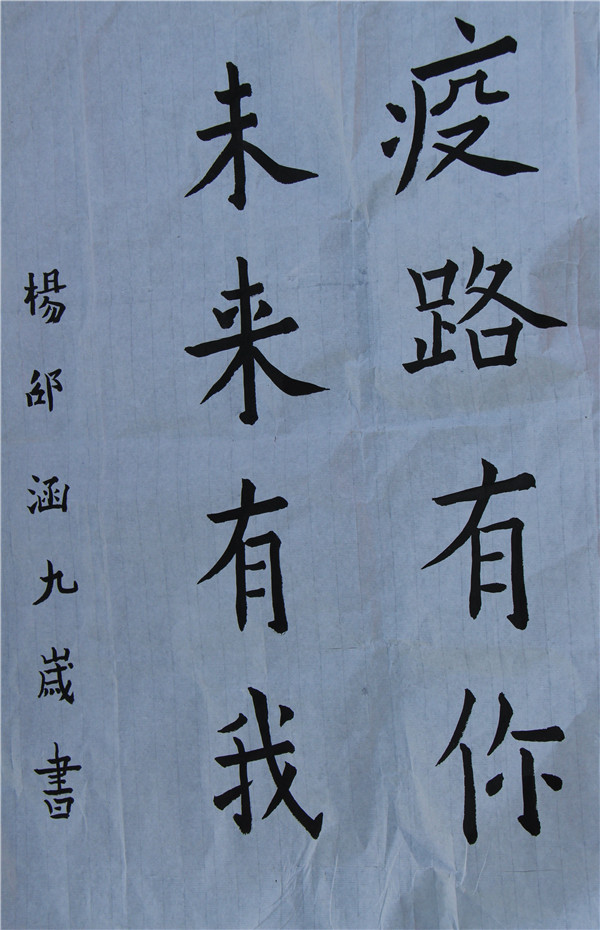 疫路有你
未来有我
楊邵涵九歲書